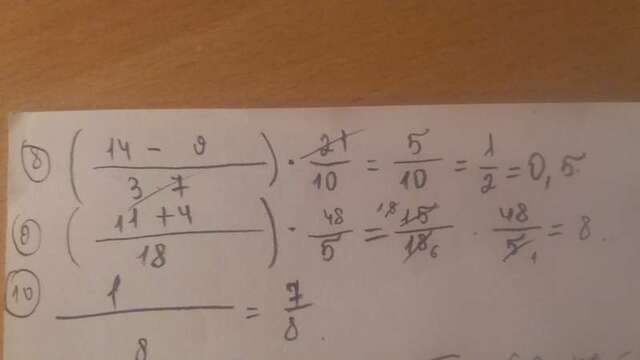 8 ( (14 - 9) / (3 · 7) ) · 21/10 = 5/10 = 1/2 = 0,5
9 ( (11 + 4) / 18 ) · 48/5 = 15/18 6 · 48/5 1 = 8.
10 1 / 8 = 7/8.